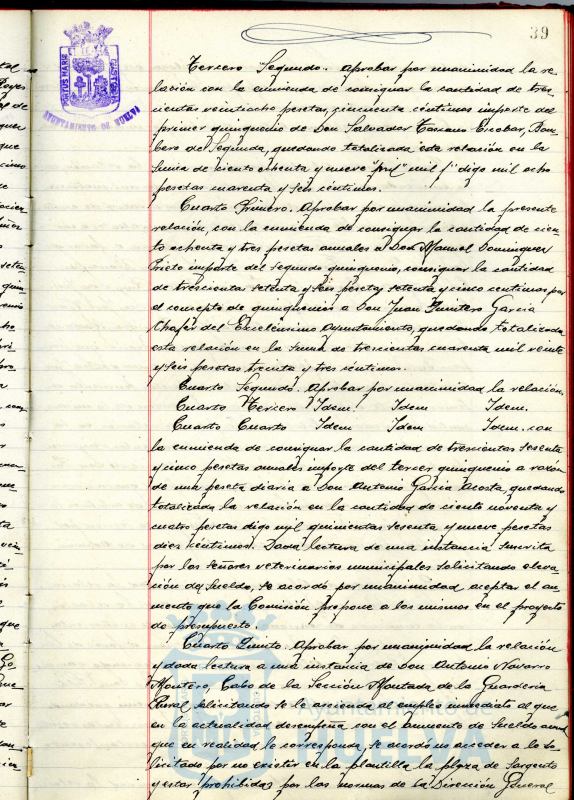 39
PORTUS MARIS ET TERRE CUSTODIA
AYUNTAMIENTO DE HUELVA
Tercero Segundo. Aprobar por unanimidad la re-
lación con la enmienda de consignar la cantidad de tres-
cientas veintiocho pesetas, cincuenta céntimos importe del
primer quinquenio de Don Salvador Toscano Escobar, Bom-
bero de Segunda, quedando totalizada esta relación en la
suma de ciento ochenta y nueve "mil" mil digo mil ocho
pesetas cuarenta y seis céntimos.
Cuarto Primero. Aprobar por unanimidad la presente
relación, con la enmienda de consignar la cantidad de cien-
to ochenta y tres pesetas anuales a Don Manuel Dominguez
Prieto importe del segundo quinquenio, consignar la cantidad
de trescientas setenta y seis pesetas, setenta y cinco céntimos por
el concepto de quinquenios a Don Juan Quintero García
Chofer del Excelentísimo Ayuntamiento, quedando totalizada
esta relación en la suma de trescientas cuarenta mil veinte
y seis pesetas treinta y tres céntimos.
Cuarto Segundo. Aprobar por unanimidad la relación.
Cuarto Tercero Idem. Idem Idem.
Cuarto Cuarto Idem Idem Idem. con
la enmienda de consignar la cantidad de trescientas sesenta
y cinco pesetas anuales importe del tercer quinquenio a razón
de una peseta diaria a Don Antonio García Acosta, quedando
totalizada la relación en la cantidad de ciento noventa y
cuatro pesetas digo mil quinientas sesenta y nueve pesetas
diez céntimos. Dada lectura de una instancia suscrita
por los señores veterinarios municipales solicitando eleva-
ción de sueldo, se acordó por unanimidad aceptar el au-
mento que la Comisión propone a los mismos en el proyecto
de presupuesto.
Cuarto Quinto. Aprobar por unanimidad la relación
y dada lectura a una instancia de Don Antonio Navarro
Montero, Cabo de la Sección Montada de la Guardería
Rural solicitando se le ascienda al empleo inmediato al que
en la actualidad desempeña con el aumento de sueldo anual
que en realidad le corresponda, se acordó no acceder a lo so-
licitado por no existir en la plantilla la plaza de Sargento
y estar prohibidas por las normas de la Dirección General
Ayuntamiento de
HUELVA